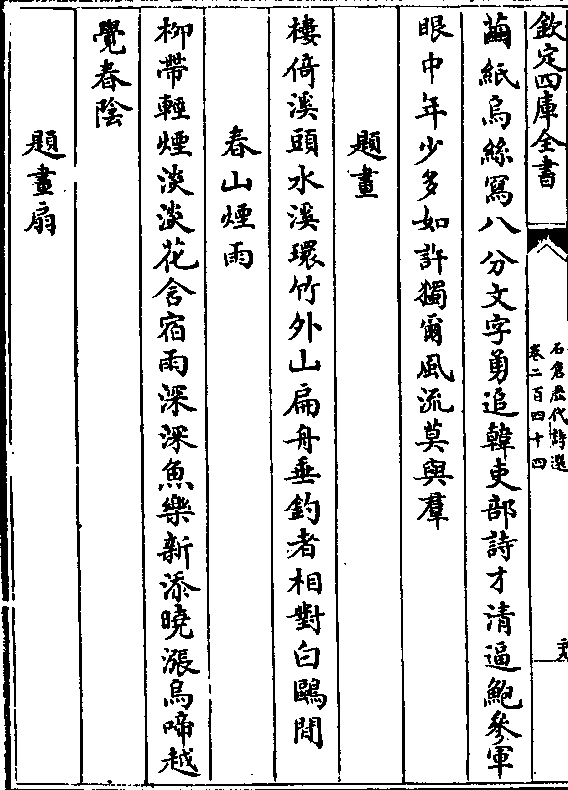 欽定四庫全書
石倉歷代詩選
卷二百四十四
繭紙烏絲寫八分文字勇追韓吏部詩才清逼鮑參軍
眼中年少多如許獨爾風流莫與羣
題畫
棲倚溪頭水溪環竹外山扁舟垂釣者相對白鷗閒
春山煙雨
柳帶輕煙淡淡花含宿雨深深魚樂新添曉漲鳥啼越
覺春陰
題畫扇